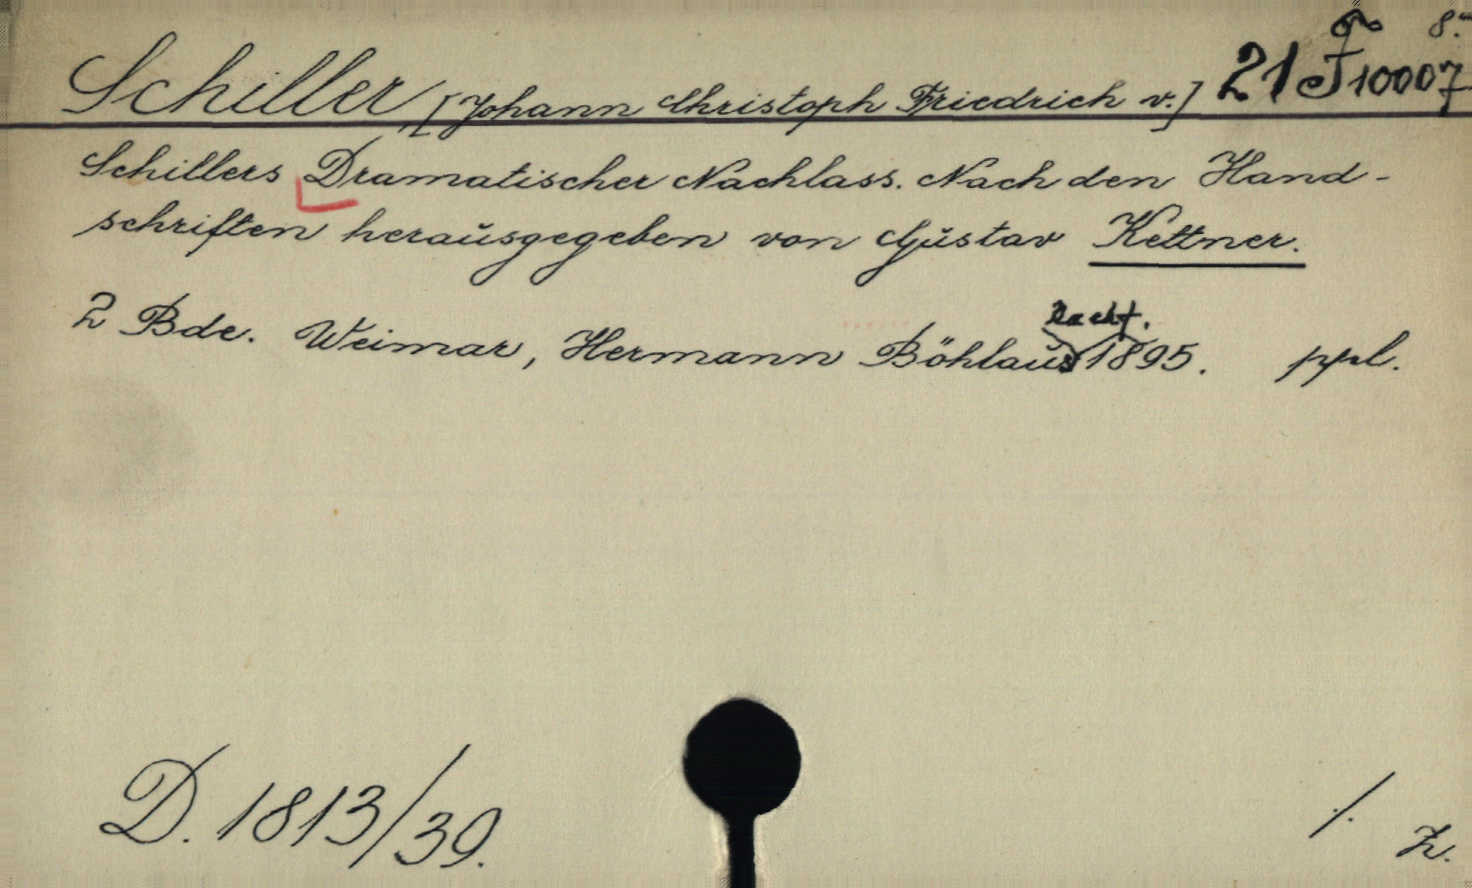 8.°
Schiller [Johann Christoph Friedrich v.] 21 F 10007
Schillers Dramatischer Nachlass. Nach den Hand-
schriften herausgegeben von Gustav Kettner.
Nachf.
2 Bde. Weimar, Hermann Böhlaus 1895. ppl.
D. 1813/39.
/.